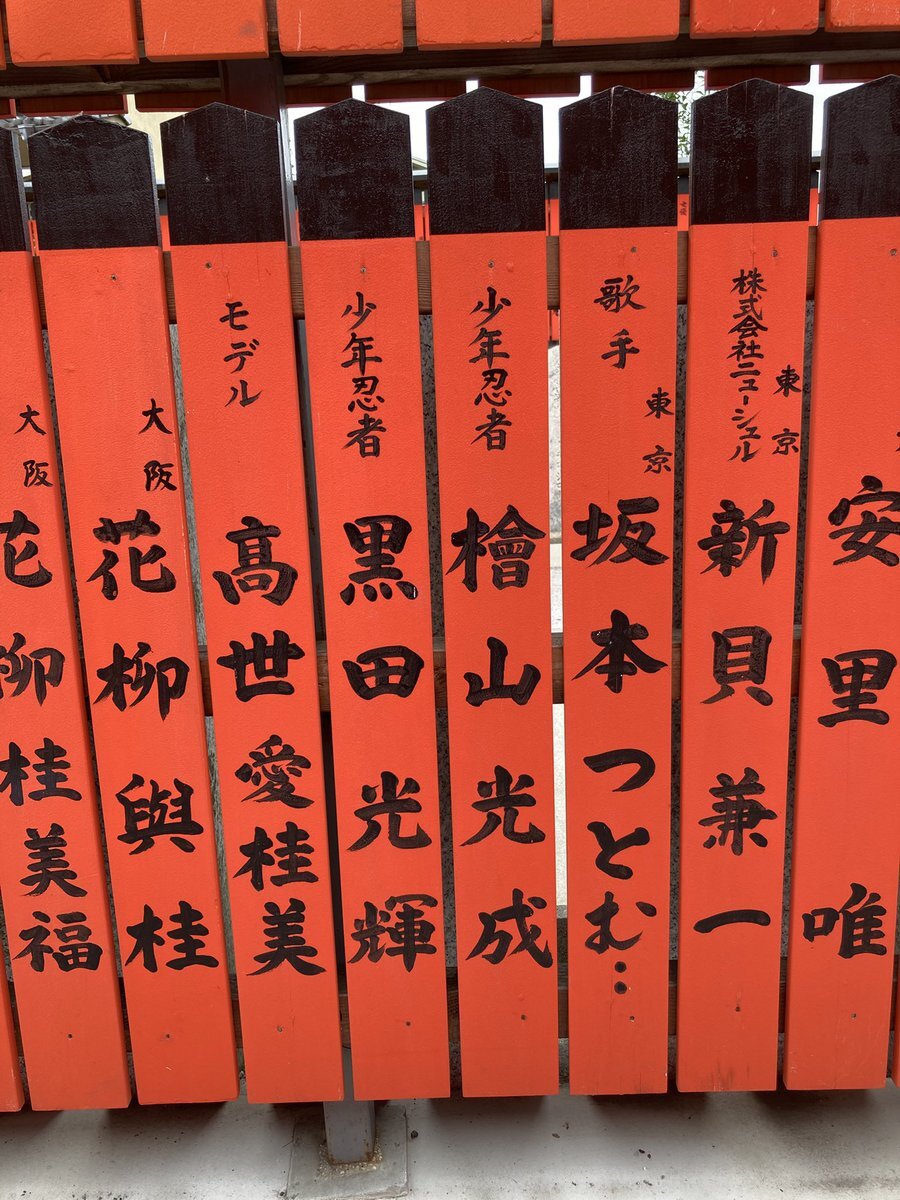 安里唯
東京
株式会社ニュージュル
新貝兼一
歌手
東京
坂本つとむ…
少年忍者
檜山光成
少年忍者
黒田光輝
モデル
高世愛桂美
大阪
花柳與桂
大阪
花柳桂美福